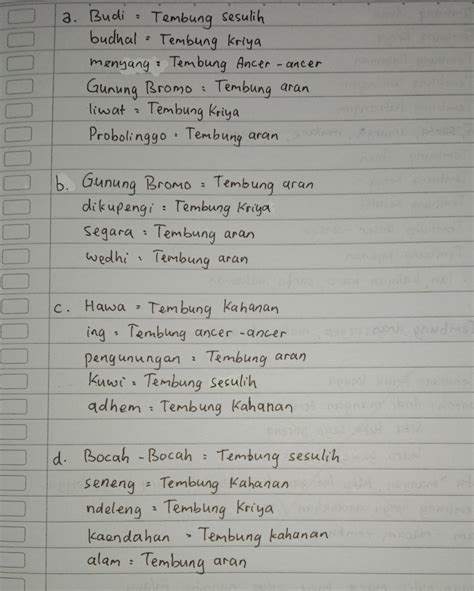 a. Budi = Tembung sesulih
budhal = Tembung Kriya
menyang = Tembung Ancer-ancer
Gunung Bromo = Tembung aran
liwat = Tembung Kriya
Probolinggo = Tembung aran
b. Gunung Bromo = Tembung aran
dikupengi = Tembung Kriya
segara = Tembung aran
wedhi = Tembung aran
c. Hawa = Tembung Kahanan
ing = Tembung ancer-ancer
pengunungan = Tembung aran
Kuwi = Tembung sesulih
adhem = Tembung Kahanan
d. Bocah-Bocah = Tembung sesulih
seneng = Tembung Kahanan
ndeleng = Tembung Kriya
kaendahan = Tembung kahanan
alam = Tembung aran